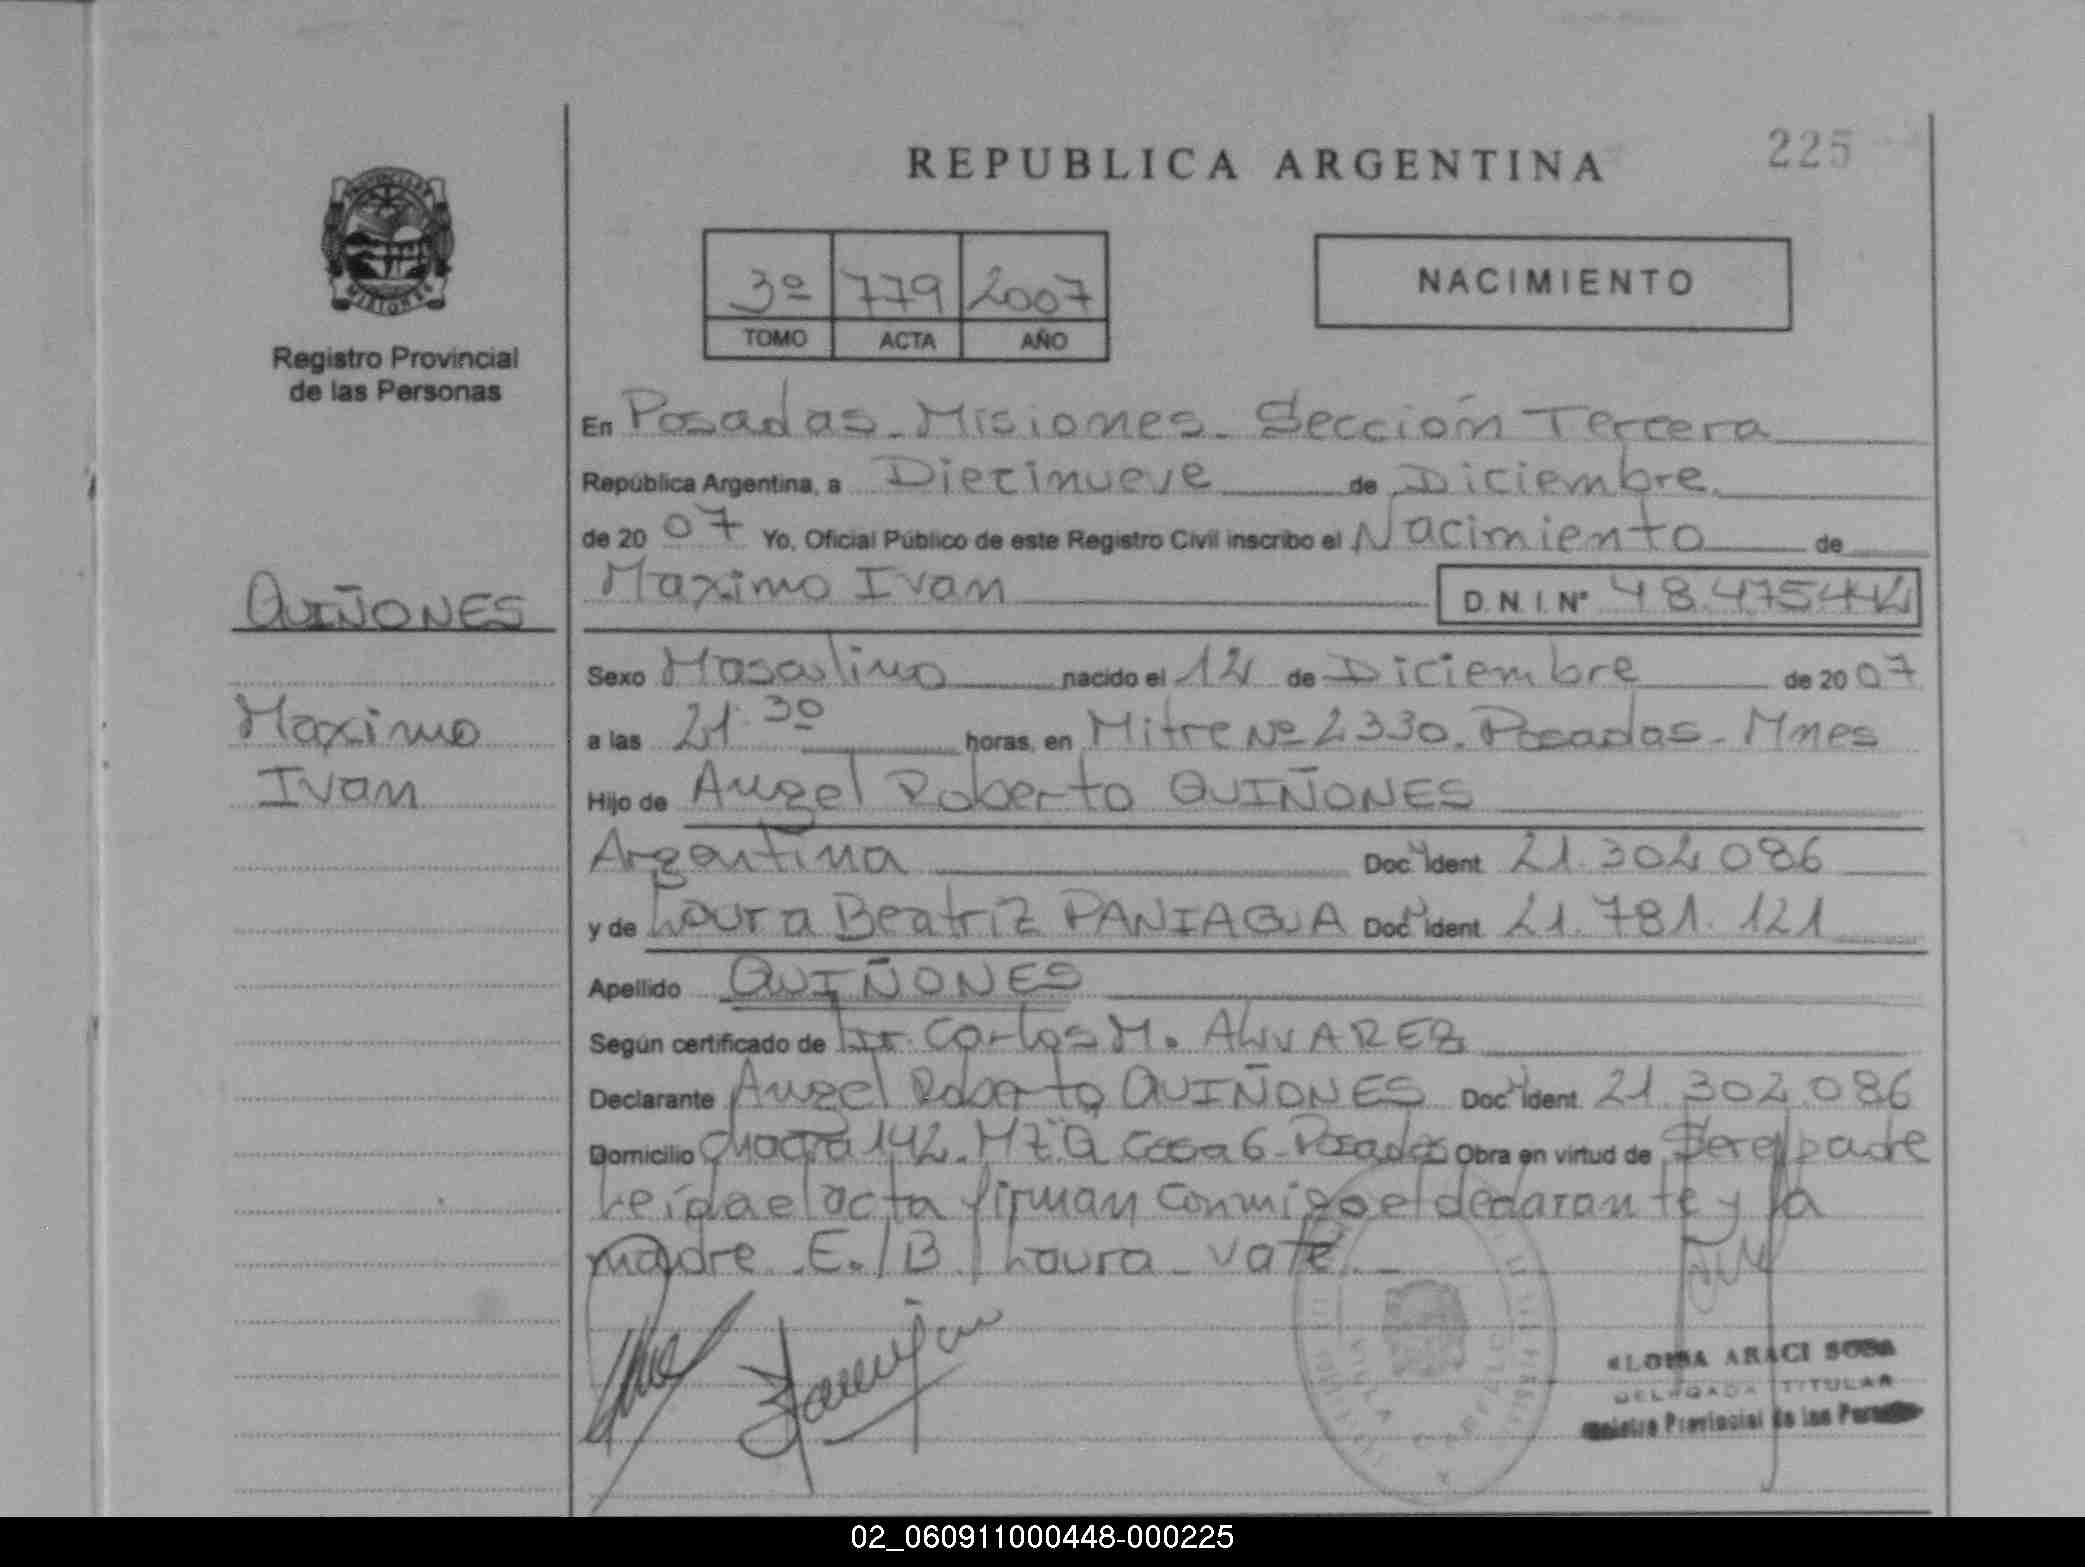 REPUBLICA ARGENTINA
225
3º 779 2007
TOMO ACTA AÑO
NACIMIENTO
MISIONES
Registro Provincial
de las Personas
En Posadas - Misiones - Sección Tercera
República Argentina, a Diecinueve de Diciembre
de 20 07 Yo, Oficial Público de este Registro Civil inscribo el Nacimiento de
QUIÑONES
Maximo Ivan D.N.I.Nº
Sexo Masculino nacido el de Diciembre de 20 07
Maximo
a las 21.30 horas, en Mitre Nº 2330. Posadas - Mnes
Ivan
Hijo de Angel Roberto QUIÑONES
Argentina Doc. Ident. 21.302.086
y de Laura Beatriz PANIAGUA Doc. Ident. 21.781.121
Apellido QUIÑONES
Según certificado de Dr. Carlos M. ALVAREZ
Declarante Angel Roberto QUIÑONES Doc. Ident. 21.302.086
Domicilio Chacra 142. Mz Q Casa 6 - Posadas Obra en virtud de Ser el padre
Leída el acta firman conmigo el declarante y la
madre. E./B / Laura - vale.
ARACI SOSA
DELEGADA TITULAR
Registro Provincial de las Personas
02_060911000448-000225